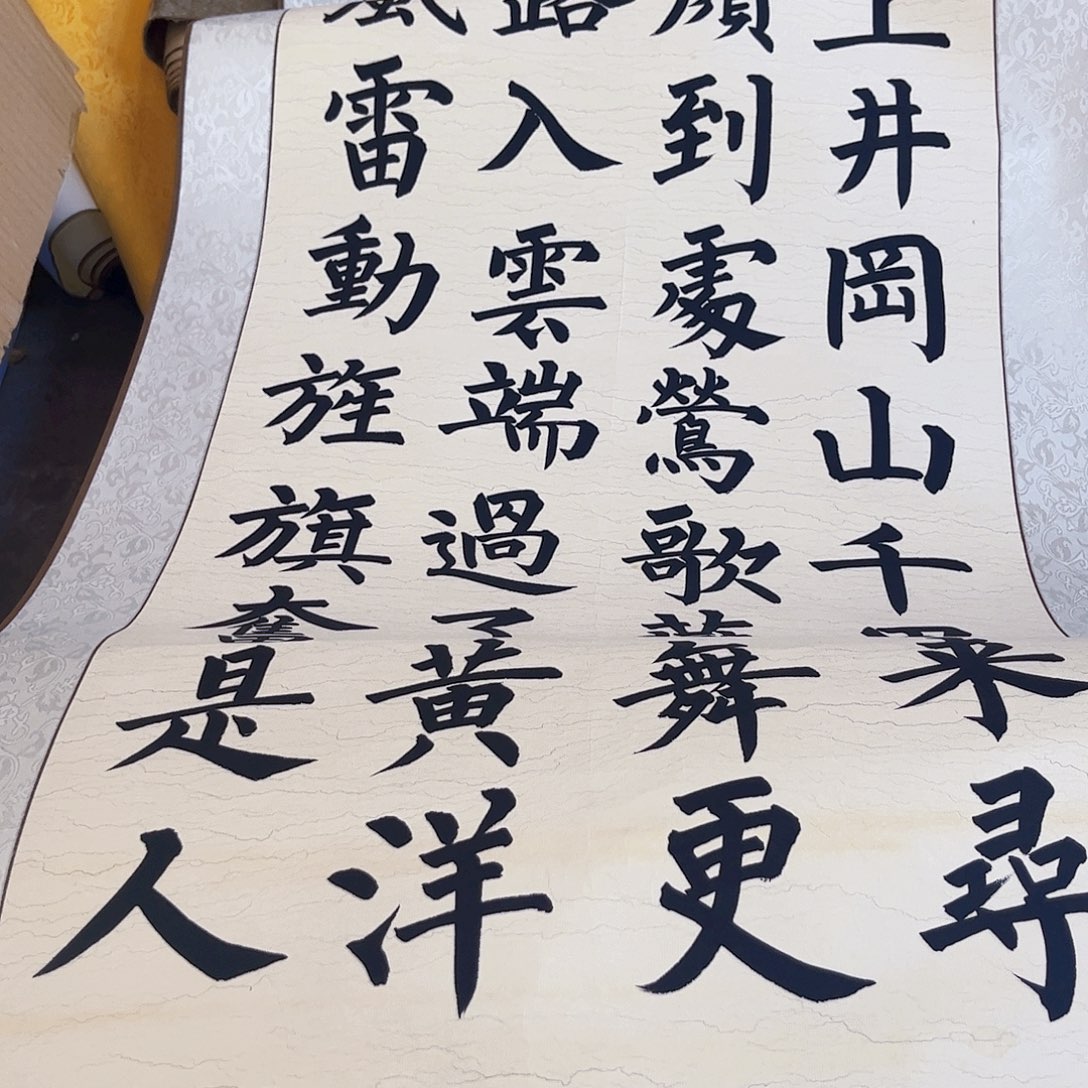 上井岡山千來尋
顏到處鶯歌舞更
路入雲端過了黃洋
風雷動旌旗奮是人